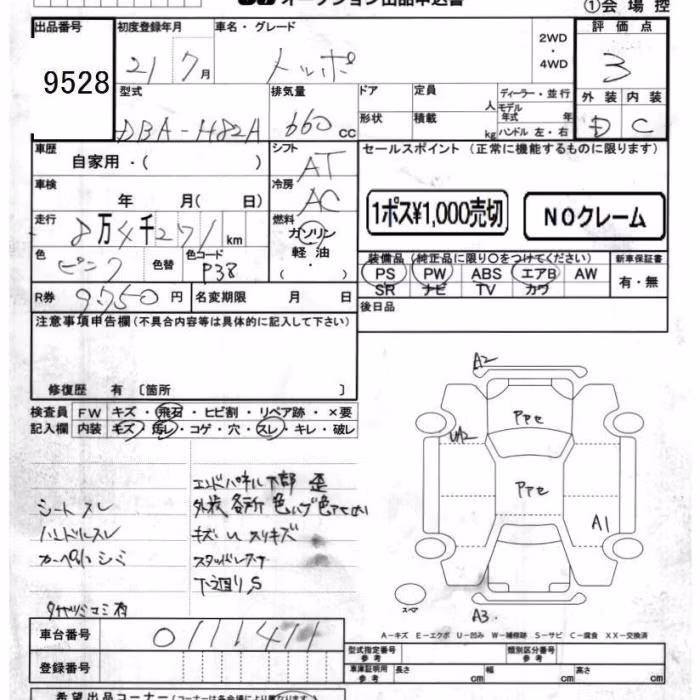 オークション出品申込書 ①会場控
出品番号 9528
初度登録年月 21 7月
車名・グレード トッポ
2WD・4WD
評価点 3
外装 内装
D C
型式 DBA-H82A
排気量 660 CC
ドア 定員 人
形状 積載 kg
ディーラー・並行
モデル年式 年
ハンドル 左・右
車歴 自家用・( )
シフト AT
車検 年 月( 日)
冷房 AC
走行 8万4千271 km
燃料 ガソリン 軽油 ( ・ )
色 ピンク 色替 色コード P38
R券 9750円 名変期限 月 日
セールスポイント(正常に機能するものに限ります)
1ポス¥1,000売切 NOクレーム
装備品(純正品に限り〇をつけてください) 新車保証書
PS PW ABS エアB AW 有・無
SR ナビ TV カワ
後日品
注意事項申告欄(不具合内容等は具体的に記入して下さい)
修復歴 有〔箇所 〕
検査員 FW キズ・飛石・ヒビ割・リペア跡・×要
記入欄 内装 キズ・汚レ・コゲ・穴・スレ・キレ・破レ
シートスレ
ハンドルスレ
カーペットシミ
エンドパネル下部 歪
外装各所 色ハゲ
キズ U スリキズ
下廻りS
A2
Ppe
UA2
Ppe
A1
スペア
A3
A-キズ E-エクボ U-凹み W-補修跡 S-サビ C-腐食 XX-交換済
車台番号 0111411
登録番号
型式指定番号 参考 類別区分番号 参考
車庫証明用 参考 長さ cm 幅 cm 高さ cm
希望出品コーナー